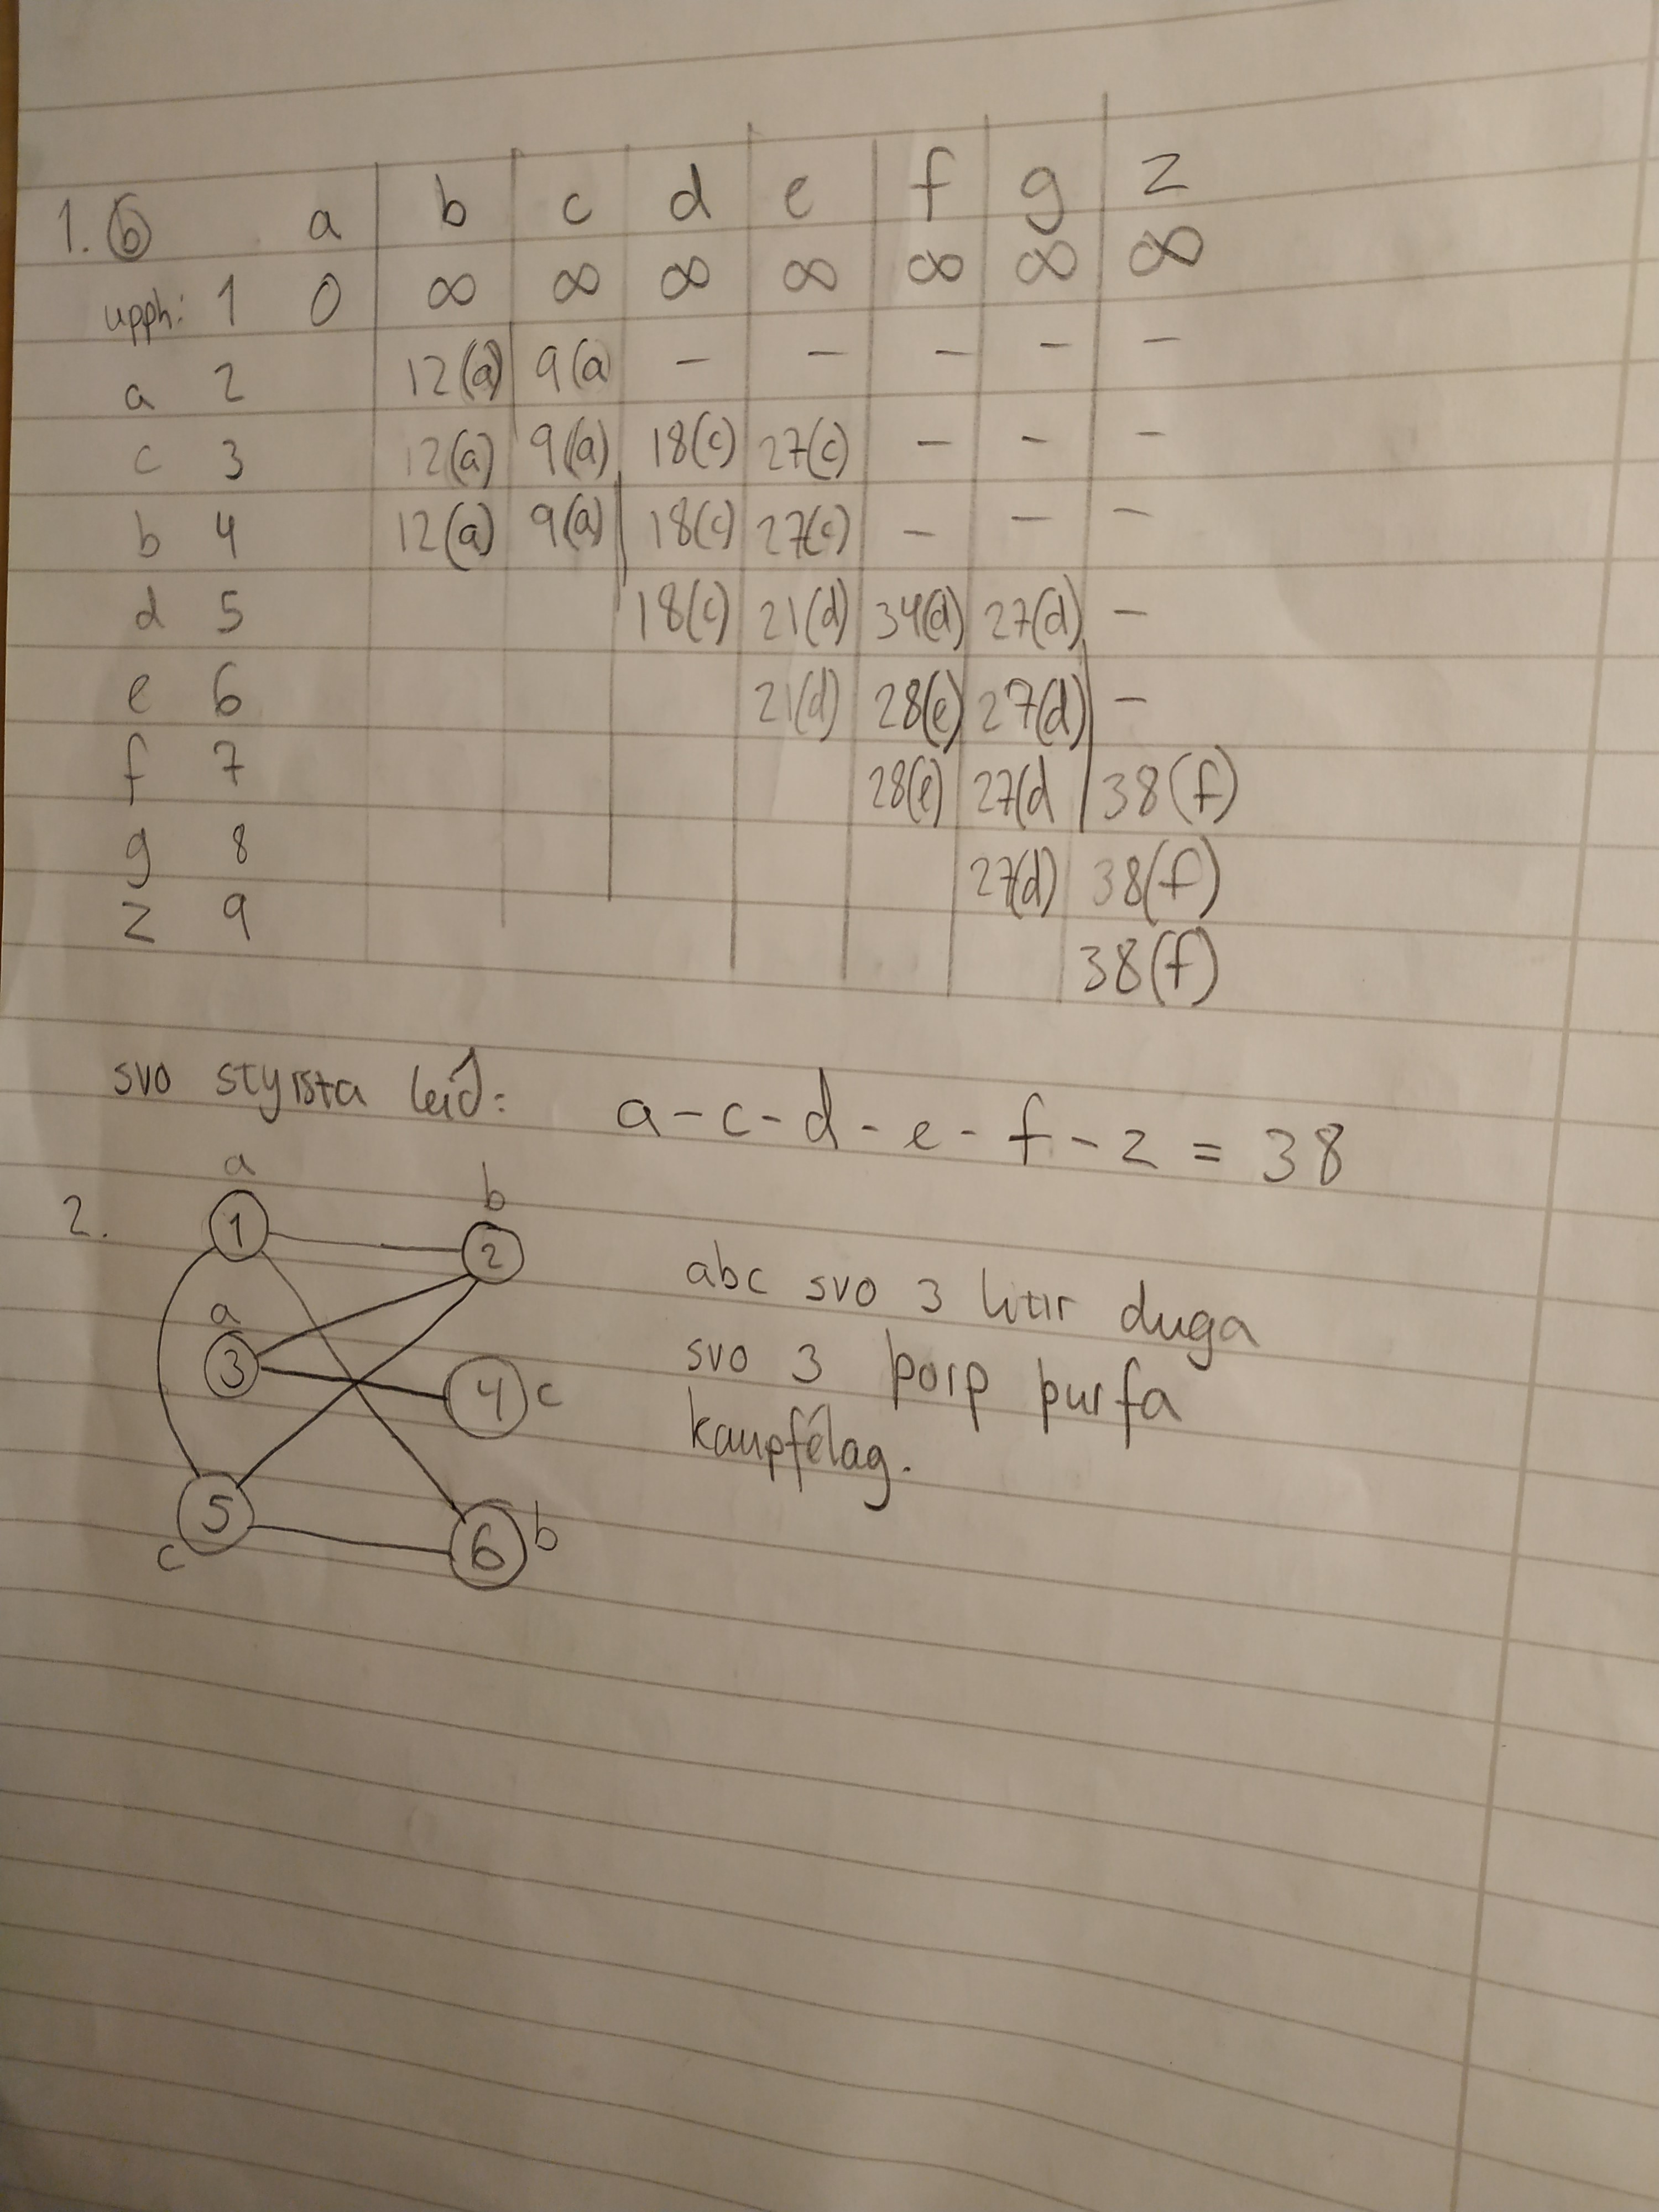 1. ⓑ a b c d e f g z
upph: 1 0 ∞ ∞ ∞ ∞ ∞ ∞ ∞
a 2 12(a) 9(a) - - - - -
c 3 12(a) 9(a) 18(c) 27(c) - - -
b 4 12(a) 9(a) 18(c) 27(c) - - -
d 5 18(c) 21(d) 34(d) 27(d) -
e 6 21(d) 28(e) 27(d) -
f 7 28(e) 27(d 38(f)
g 8 27(d) 38(f)
z 9 38(f)
svo styrsta leið: a-c-d-e-f-z = 38
2.
a
1
b
2
a
3
4 c
5
c
6 b
abc svo 3 litir duga
svo 3 þorp þurfa
kaupfélag.